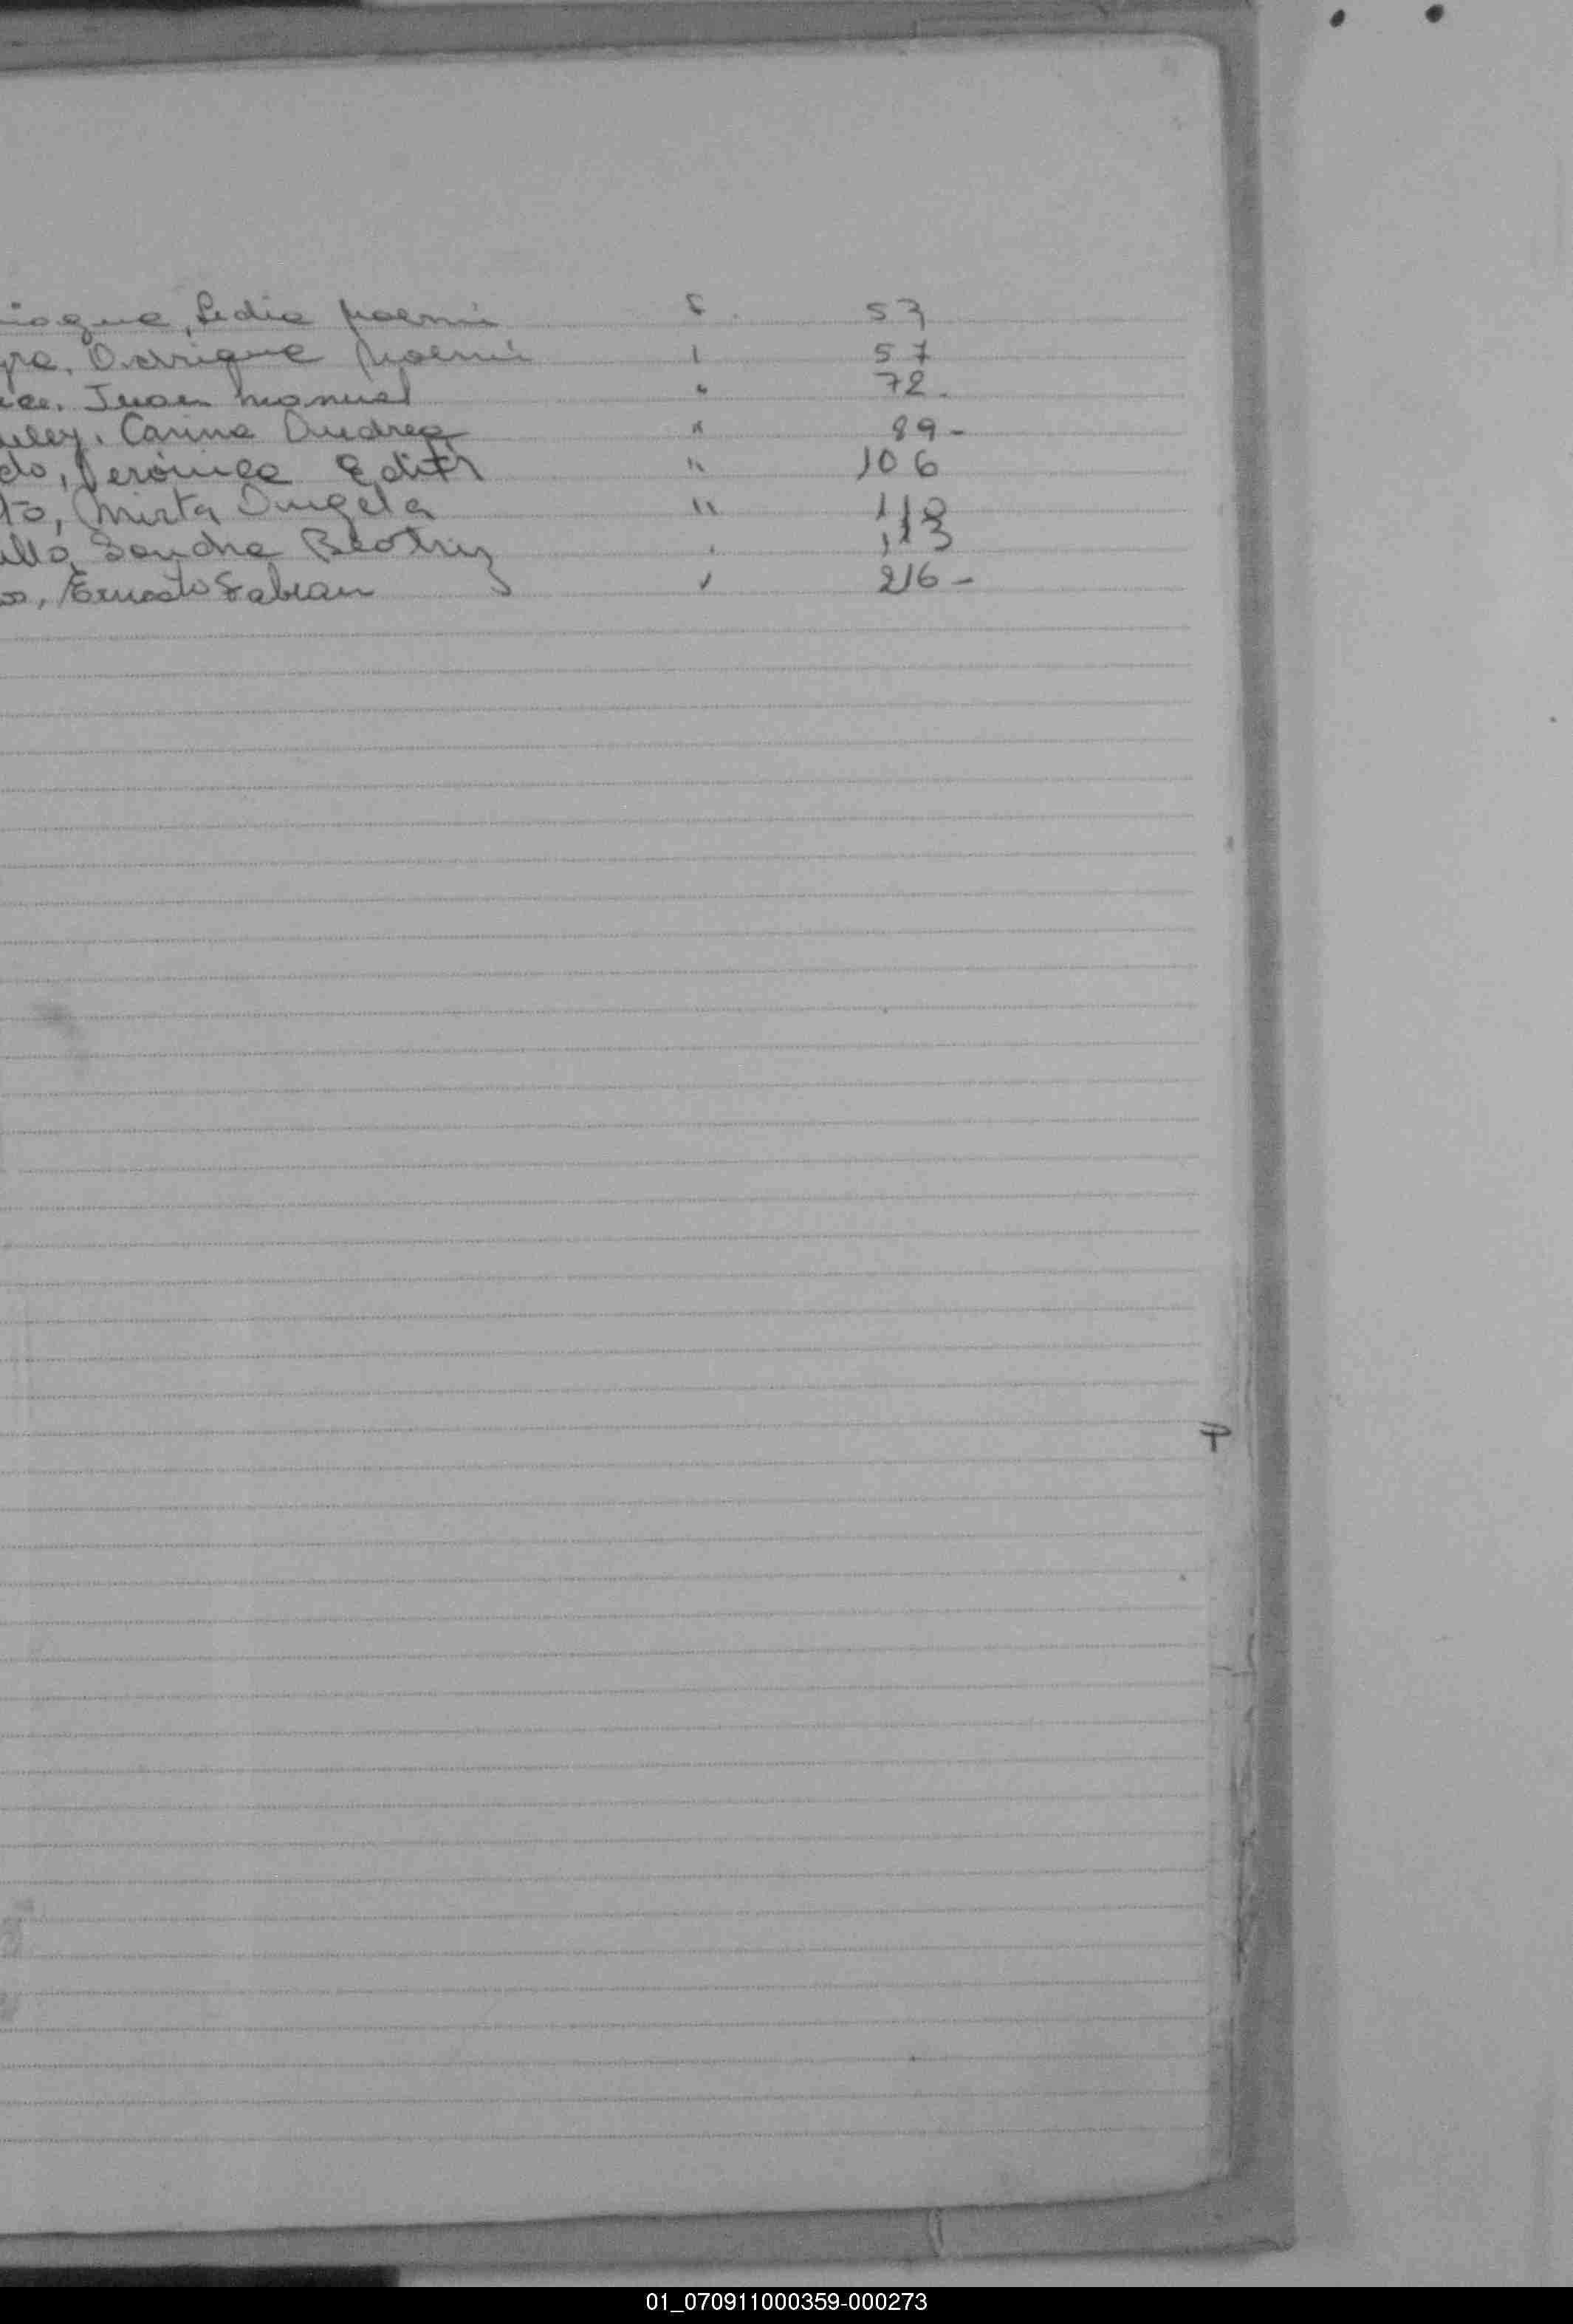 iogue, Lidia Noemi " 57
yra, Enrique Noemi " 57
ce, Juan Manuel " 72.
uley, Carina Andrea " 89-
do, Verónica Edith " 106
to, Mirta Angela " 118
illo, Sandra Beatriz " 113
so, Ernesto Fabian " 216-
P
01_070911000359-000273